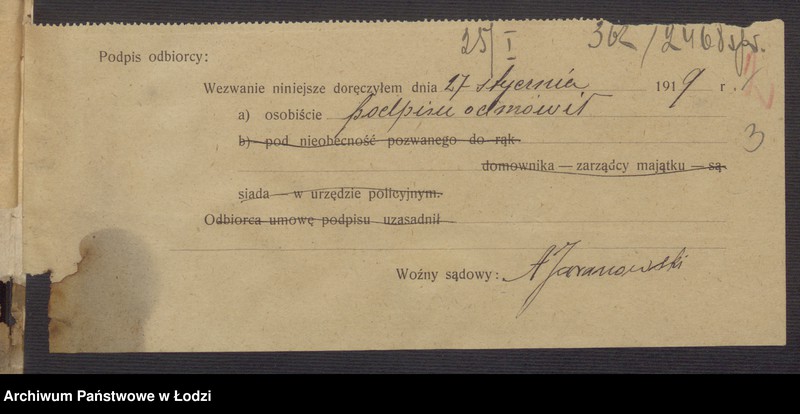 25/I 362/2468 spr.
Podpis odbiorcy:
Wezwanie niniejsze doręczyłem dnia 27 stycznia 1919 r.
a) osobiście podpisu odmówił
3
b) pod nieobecność pozwanego do rąk
domownika — zarządcy majątku — są
siada — w urzędzie policyjnym.
Odbiorca umowę podpisu uzasadnił
Woźny sądowy: A Jaranowski
Archiwum Państwowe w Łodzi